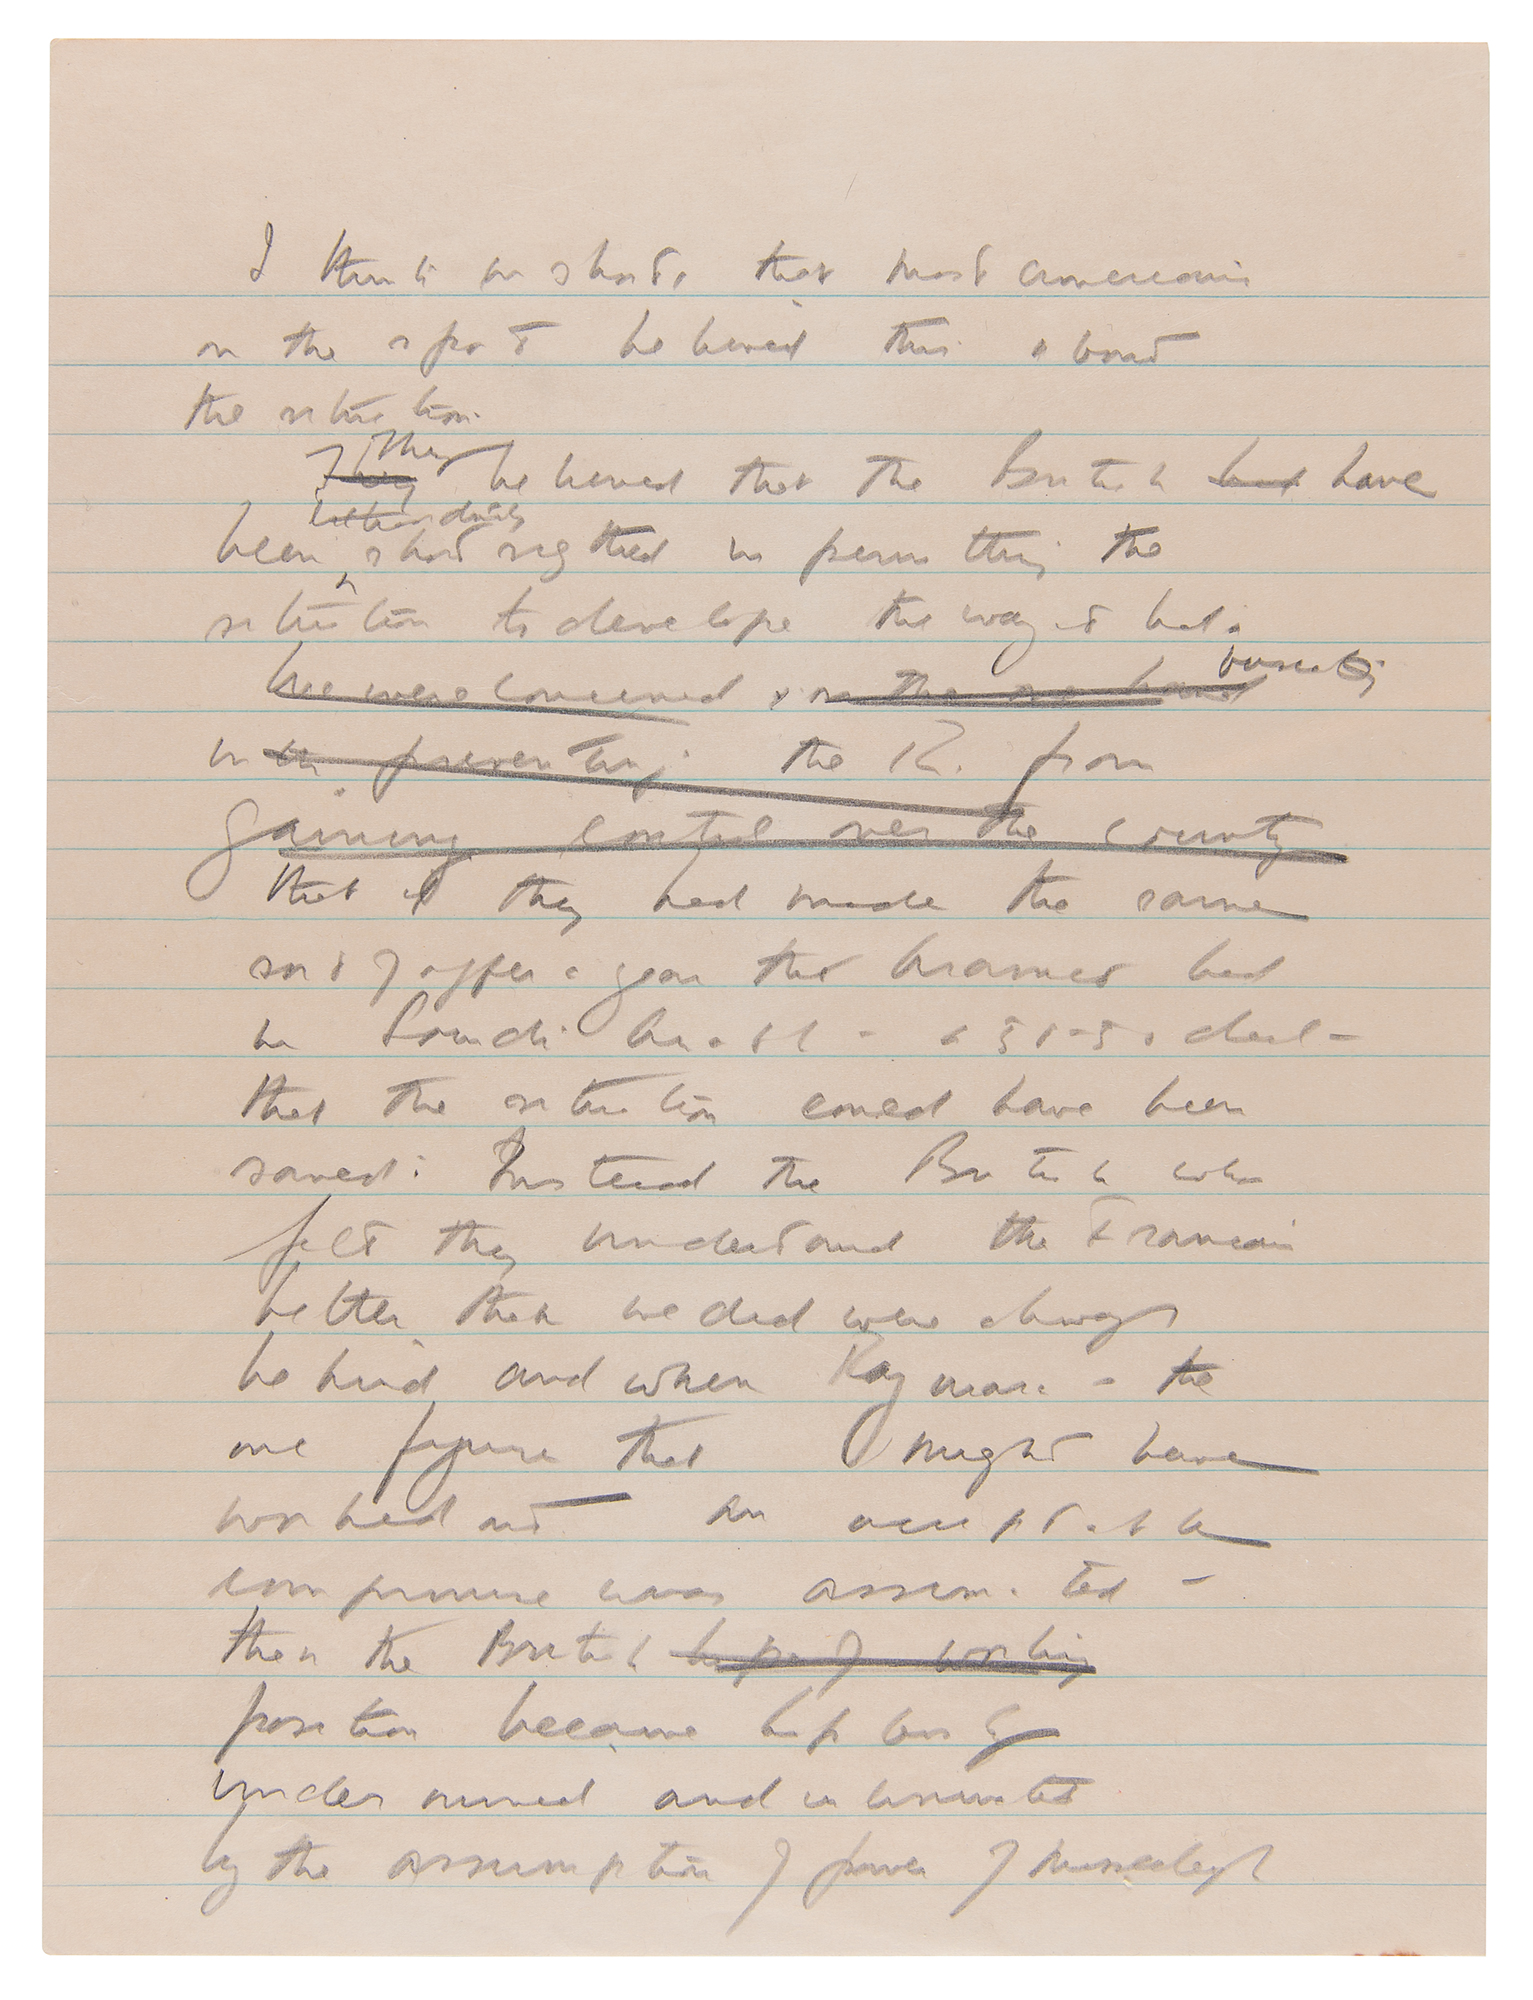 I think in short, that most americans
on the spot believed this about
the situation.
They They believed that the British had have
been shortsighted in permitting the
situation to develope the way it had.
we were concerned on the one hand
in preventing the R. from
gaining control over the country
that if they had made the same
sort of offer a year that Aramco had
in Saudi Arabia - a 50-50 deal -
that the situation could have been
saved. Instead the British who
felt they understand the Iranians
better than we did were always
behind and when Razmara - the
one figure that might have
worked out an acceptable
compromise was assassinated -
then the British hope of working
position became hopelessly
undermined and
by the assumption of power of Mussadegh